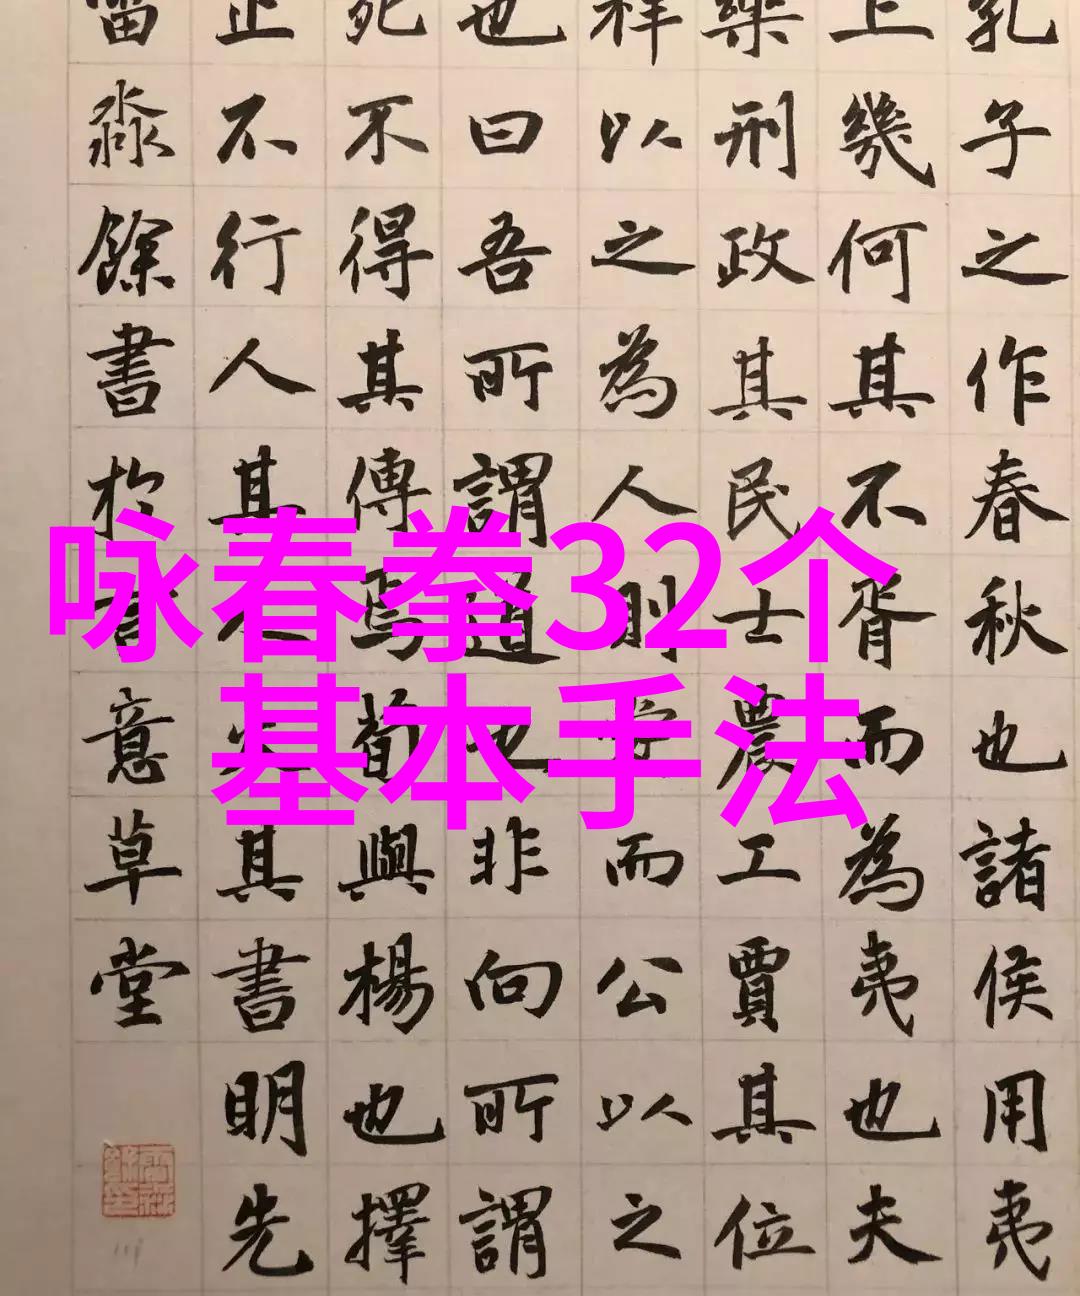 咏春拳32个
基本手法
孔子之作春秋也諸侯用夷
上幾何其不胥而為夷也夫
樂刑政其民士農工賈其位
祥以之為人則愛而公以之
也曰吾所謂道也非向所謂
死不得其傳焉荀與楊也擇
止不行人其人火其書明先
淼餘書於意草堂